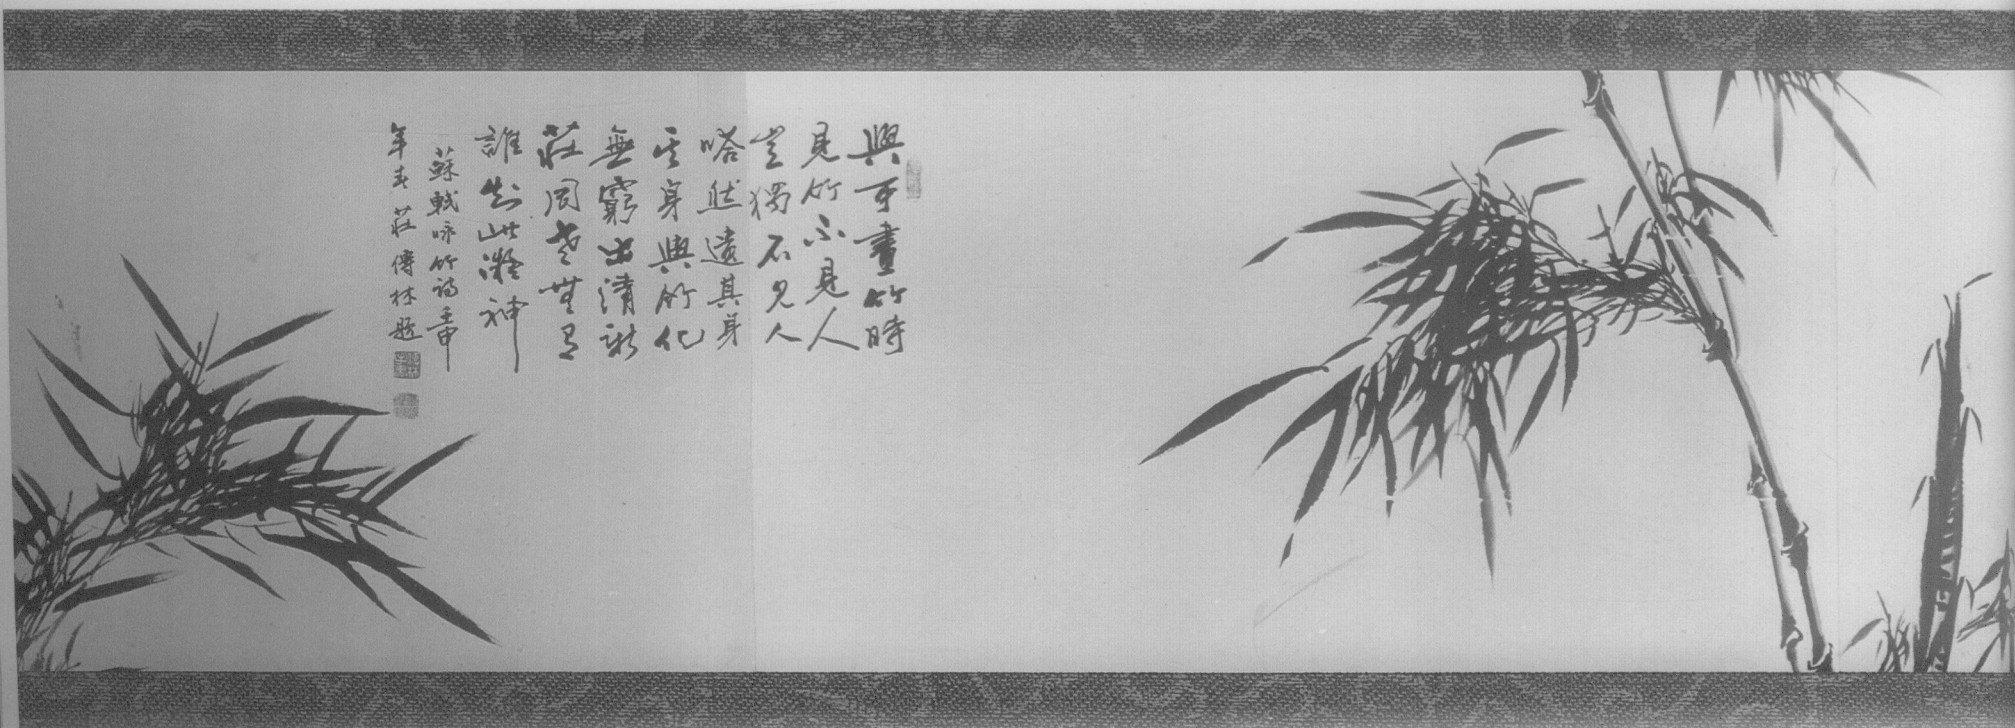 與可畫竹時
見竹不見人
豈獨不見人
嗒然遺其身
其身與竹化
無窮出清新
莊周世無有
誰知此凝神
蘇軾咏竹詩壬申
年春莊傳林題